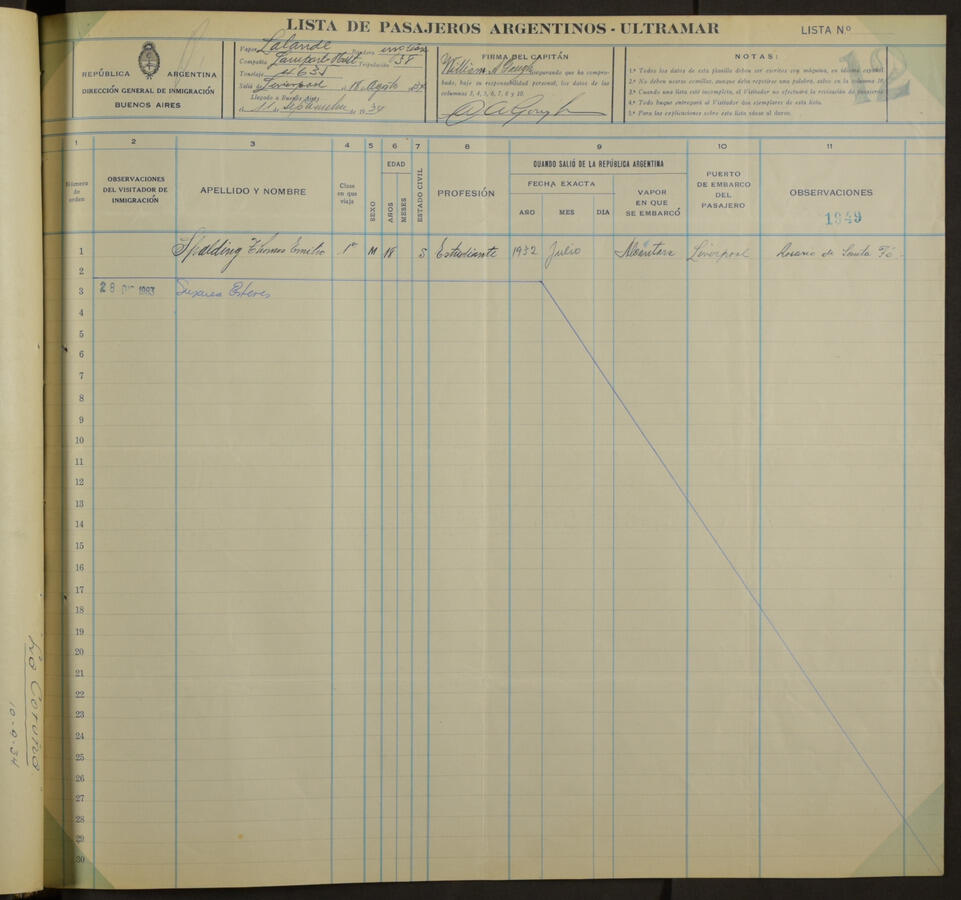 LISTA DE PASAJEROS ARGENTINOS - ULTRAMAR
LISTA Nº
12
REPÚBLICA ARGENTINA
DIRECCIÓN GENERAL DE INMIGRACIÓN
BUENOS AIRES
Vapor Lalande Bandera
Compañía Lamport Holt Tripulación 38
Tonelaje 4633
Salió Liverpool 18 Agosto 34
Llegado a Buenos Aires
el 11 de Septiembre de 1934
FIRMA DEL CAPITÁN
William asegurando que ha compro-
bado, bajo su responsabilidad personal, los datos de las
columnas 3, 4, 5, 6, 7, 8 y 10.
NOTAS:
1.ª Todos los datos de esta planilla deben ser escritos con máquina, en idioma español
2.ª No deben usarse comillas, aunque deba repetirse una palabra, salvo en la columna 10.
3.ª Cuando una lista esté incompleta, el Visitador no efectuará la revisación de pasajeros
4.ª Todo buque entregará al Visitador dos ejemplares de esta lista.
5.ª Para las explicaciones sobre esta lista véase al dorso.
1 2 3 4 5 6 7 8 9 10 11
Número de orden
OBSERVACIONES DEL VISITADOR DE INMIGRACIÓN
APELLIDO Y NOMBRE
Clase en que viaja
SEXO
EDAD
AÑOS
MESES
ESTADO CIVIL
PROFESIÓN
QUANDO SALIÓ DE LA REPÚBLICA ARGENTINA
FECHA EXACTA
AÑO MES DIA
VAPOR EN QUE SE EMBARCÓ
PUERTO DE EMBARCO DEL PASAJERO
OBSERVACIONES
1949
1 Spalding Thomas Emilio 1ª M 18 S Estudiante 1932 Julio Alcántara Liverpool Rosario de Santa Fé
2
3 28 DIC 1993 Susana Esteves
4
5
6
7
8
9
10
11
12
13
14
15
16
17
18
19
20
21
22
23
24
25
26
27
28
29
30
La Coruña
10-9-34